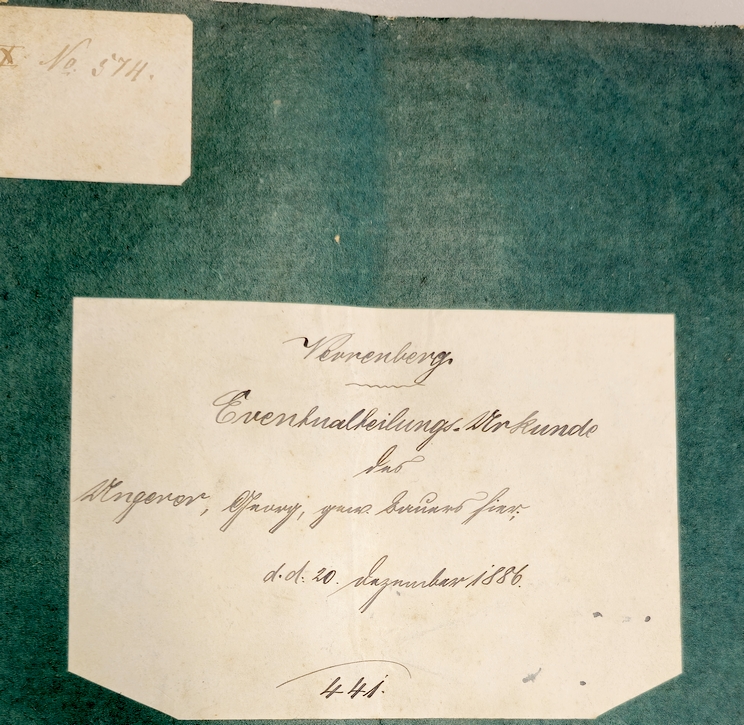 X. No. 574.
Verrenberg.
Eventualteilungs-Urkunde
des
Ungerer, Georg, gew. Bauers hier,
d.d. 20. Dezember 1886.
441.